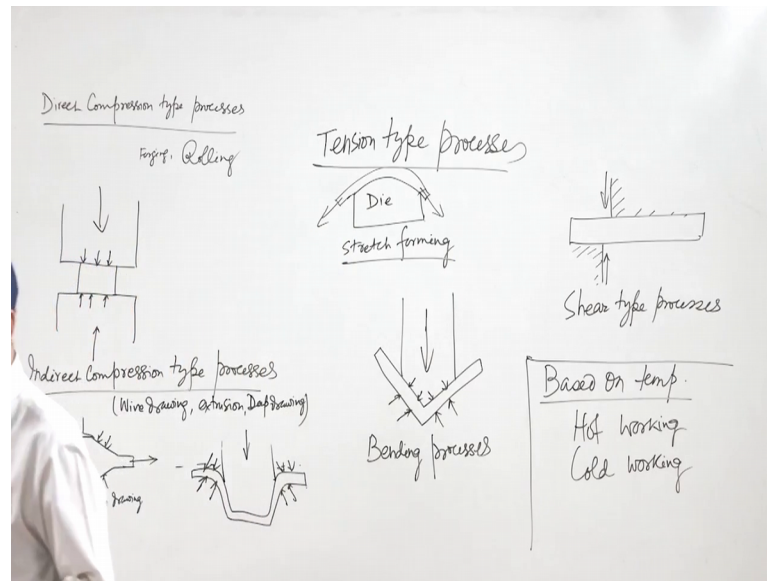 Direct Compression type processes
Forging, Rolling
Indirect Compression type processes
(Wire drawing, extrusion, Deep drawing)
drawing
Tension type processes
Die
Stretch forming
Bending processes
Shear type processes
Based on temp.
Hot working
Cold working